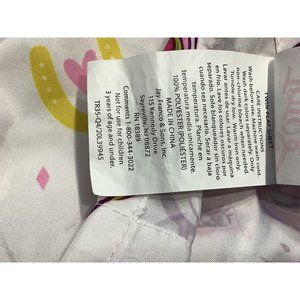 TWIN FLAT SHEET
CARE INSTRUCTIONS
Wash before use. Machine wash cold.
Wash dark colors separately. Only
non-chlorine bleach when needed.
Tumble dry low. Warm iron
Lavar antes de usar. Lavar a máquina
en frío. Lave los colores oscuros por
separado. Solo blanqueador sin cloro
cuando sea necesario. Secar a baja
temperatura. Planche en
temperatura media únicamente.
100% POLYESTER (POLIÉSTER)
MADE IN CHINA
Jay Franco & Sons, Inc.
115 Kennedy Drive
Sayreville, NJ 08872
RN 18389
Comments 1-800-344-3022
Not for use for children
3 years of age and under.